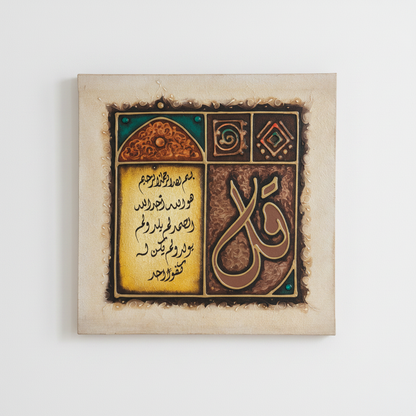 قل
بسم الله الرحمن الرحيم
هو الله أحد الله
الصمد لم يلد ولم
يولد ولم يكن له
كفوا أحد